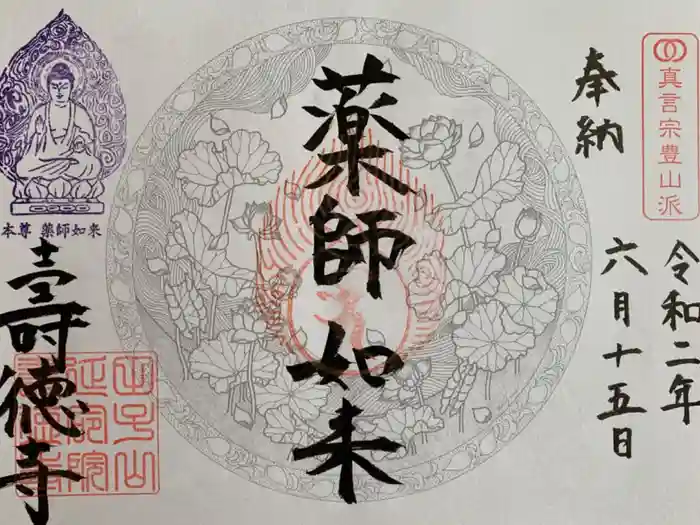 真言宗豊山派
令和二年
六月十五日
奉納
薬師如来
本尊 薬師如来
壽徳寺